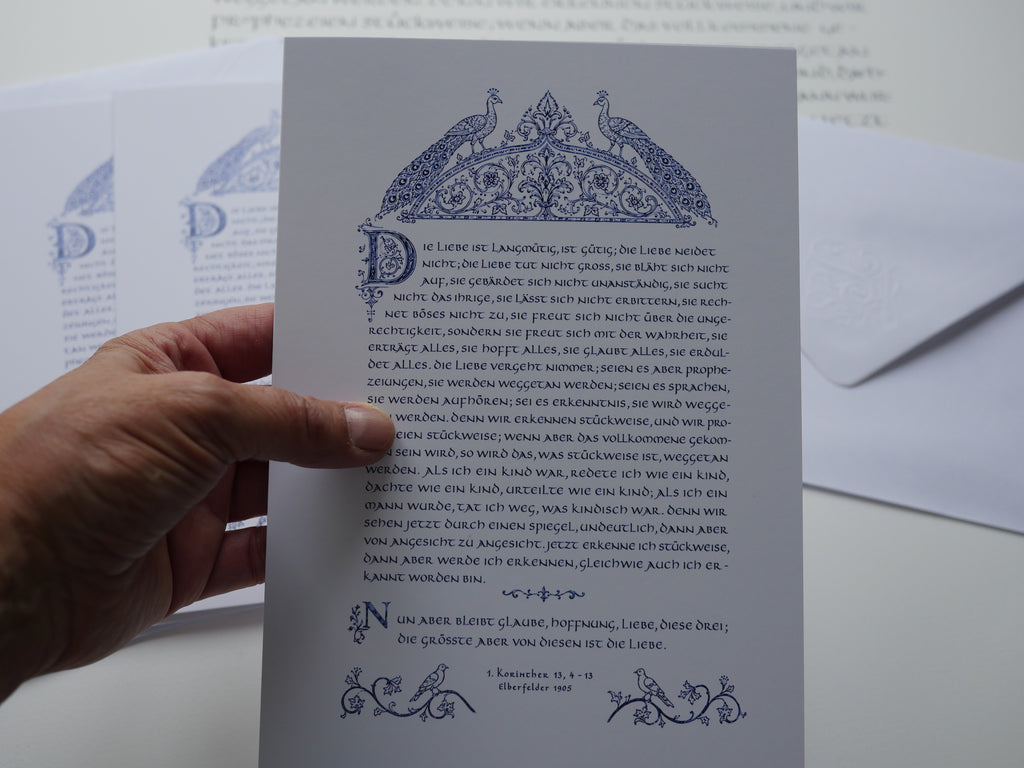 Die Liebe ist langmütig, ist gütig; die Liebe neidet
nicht; die Liebe tut nicht gross, sie bläht sich nicht
auf, sie gebärdet sich nicht unanständig, sie sucht
nicht das ihrige, sie lässt sich nicht erbittern, sie rech-
net Böses nicht zu, sie freut sich nicht über die unge-
rechtigkeit, sondern sie freut sich mit der Wahrheit, sie
erträgt alles, sie hofft alles, sie glaubt alles, sie erdul-
det alles. Die Liebe vergeht nimmer; seien es aber prophe-
zeiungen, sie werden weggetan werden; seien es sprachen,
sie werden aufhören; sei es erkenntnis, sie wird wegge-
werden. Denn wir erkennen stückweise, und wir pro-
eien stückweise; wenn aber das vollkommene gekom-
sein wird, so wird das, was stückweise ist, weggetan
werden. Als ich ein kind war, redete ich wie ein kind,
dachte wie ein kind, urteilte wie ein kind; als ich ein
mann wurde, tat ich weg, was kindisch war. Denn wir
sehen jetzt durch einen spiegel, undeutlich, dann aber
von angesicht zu angesicht. Jetzt erkenne ich stückweise,
dann aber werde ich erkennen, gleichwie auch ich er-
kannt worden bin.
Nun aber bleibt Glaube, Hoffnung, Liebe, diese drei;
die grösste aber von diesen ist die Liebe.
1. Korinther 13, 4 - 13
Elberfelder 1905